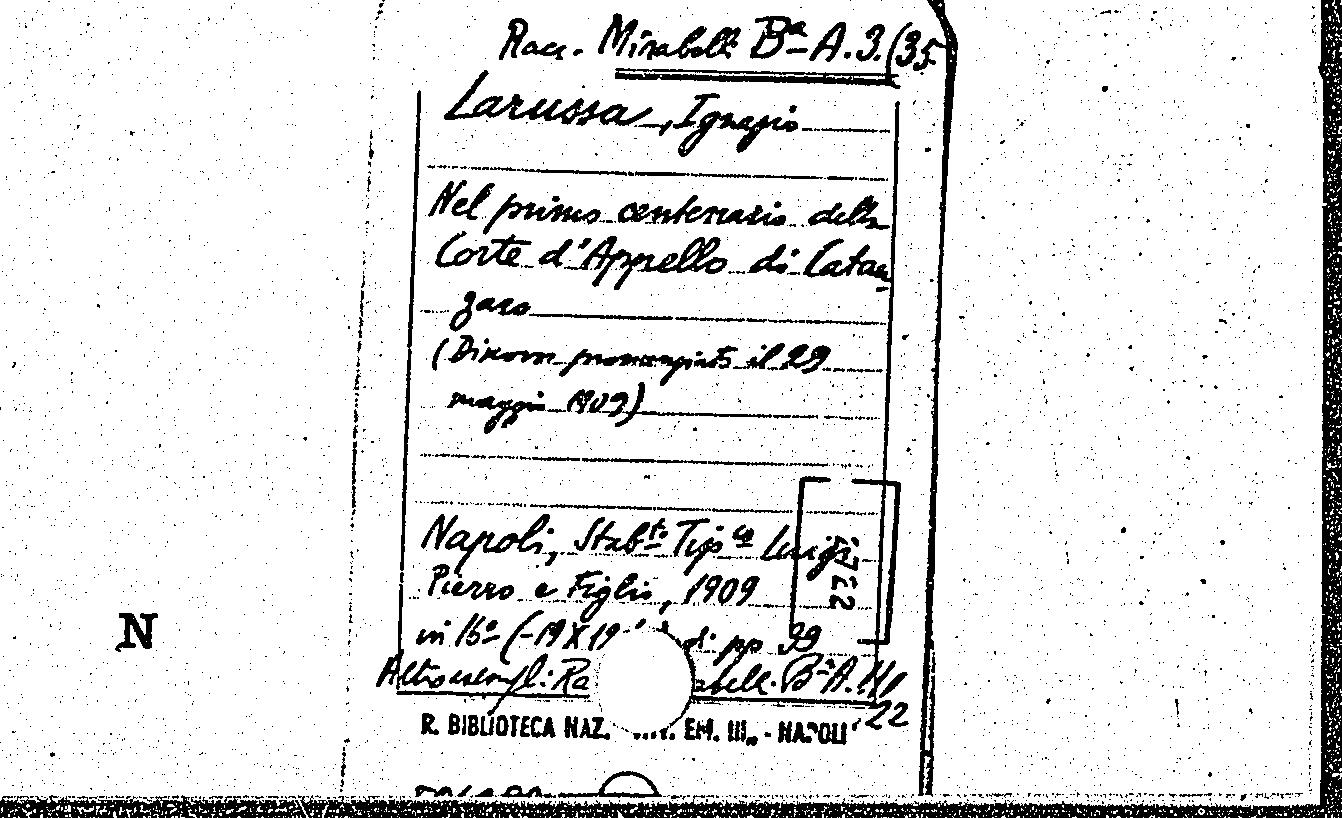 Racc. Mirabelli Bª A.3.(35
Larussa, Ignazio
Nel primo centenario della
Corte d'Appello di Catan
zaro
(Discorso pronunziato il 29
maggio 1909)
Napoli, Stab.to Tip.co Luigi
Pierro e Figlio, 1909
in 16º (-19X19 di pp 39
N
Altro esempl: Ra abell. Bª A.
22
R. BIBLIOTECA NAZ. EM. III„ - NAPOLI